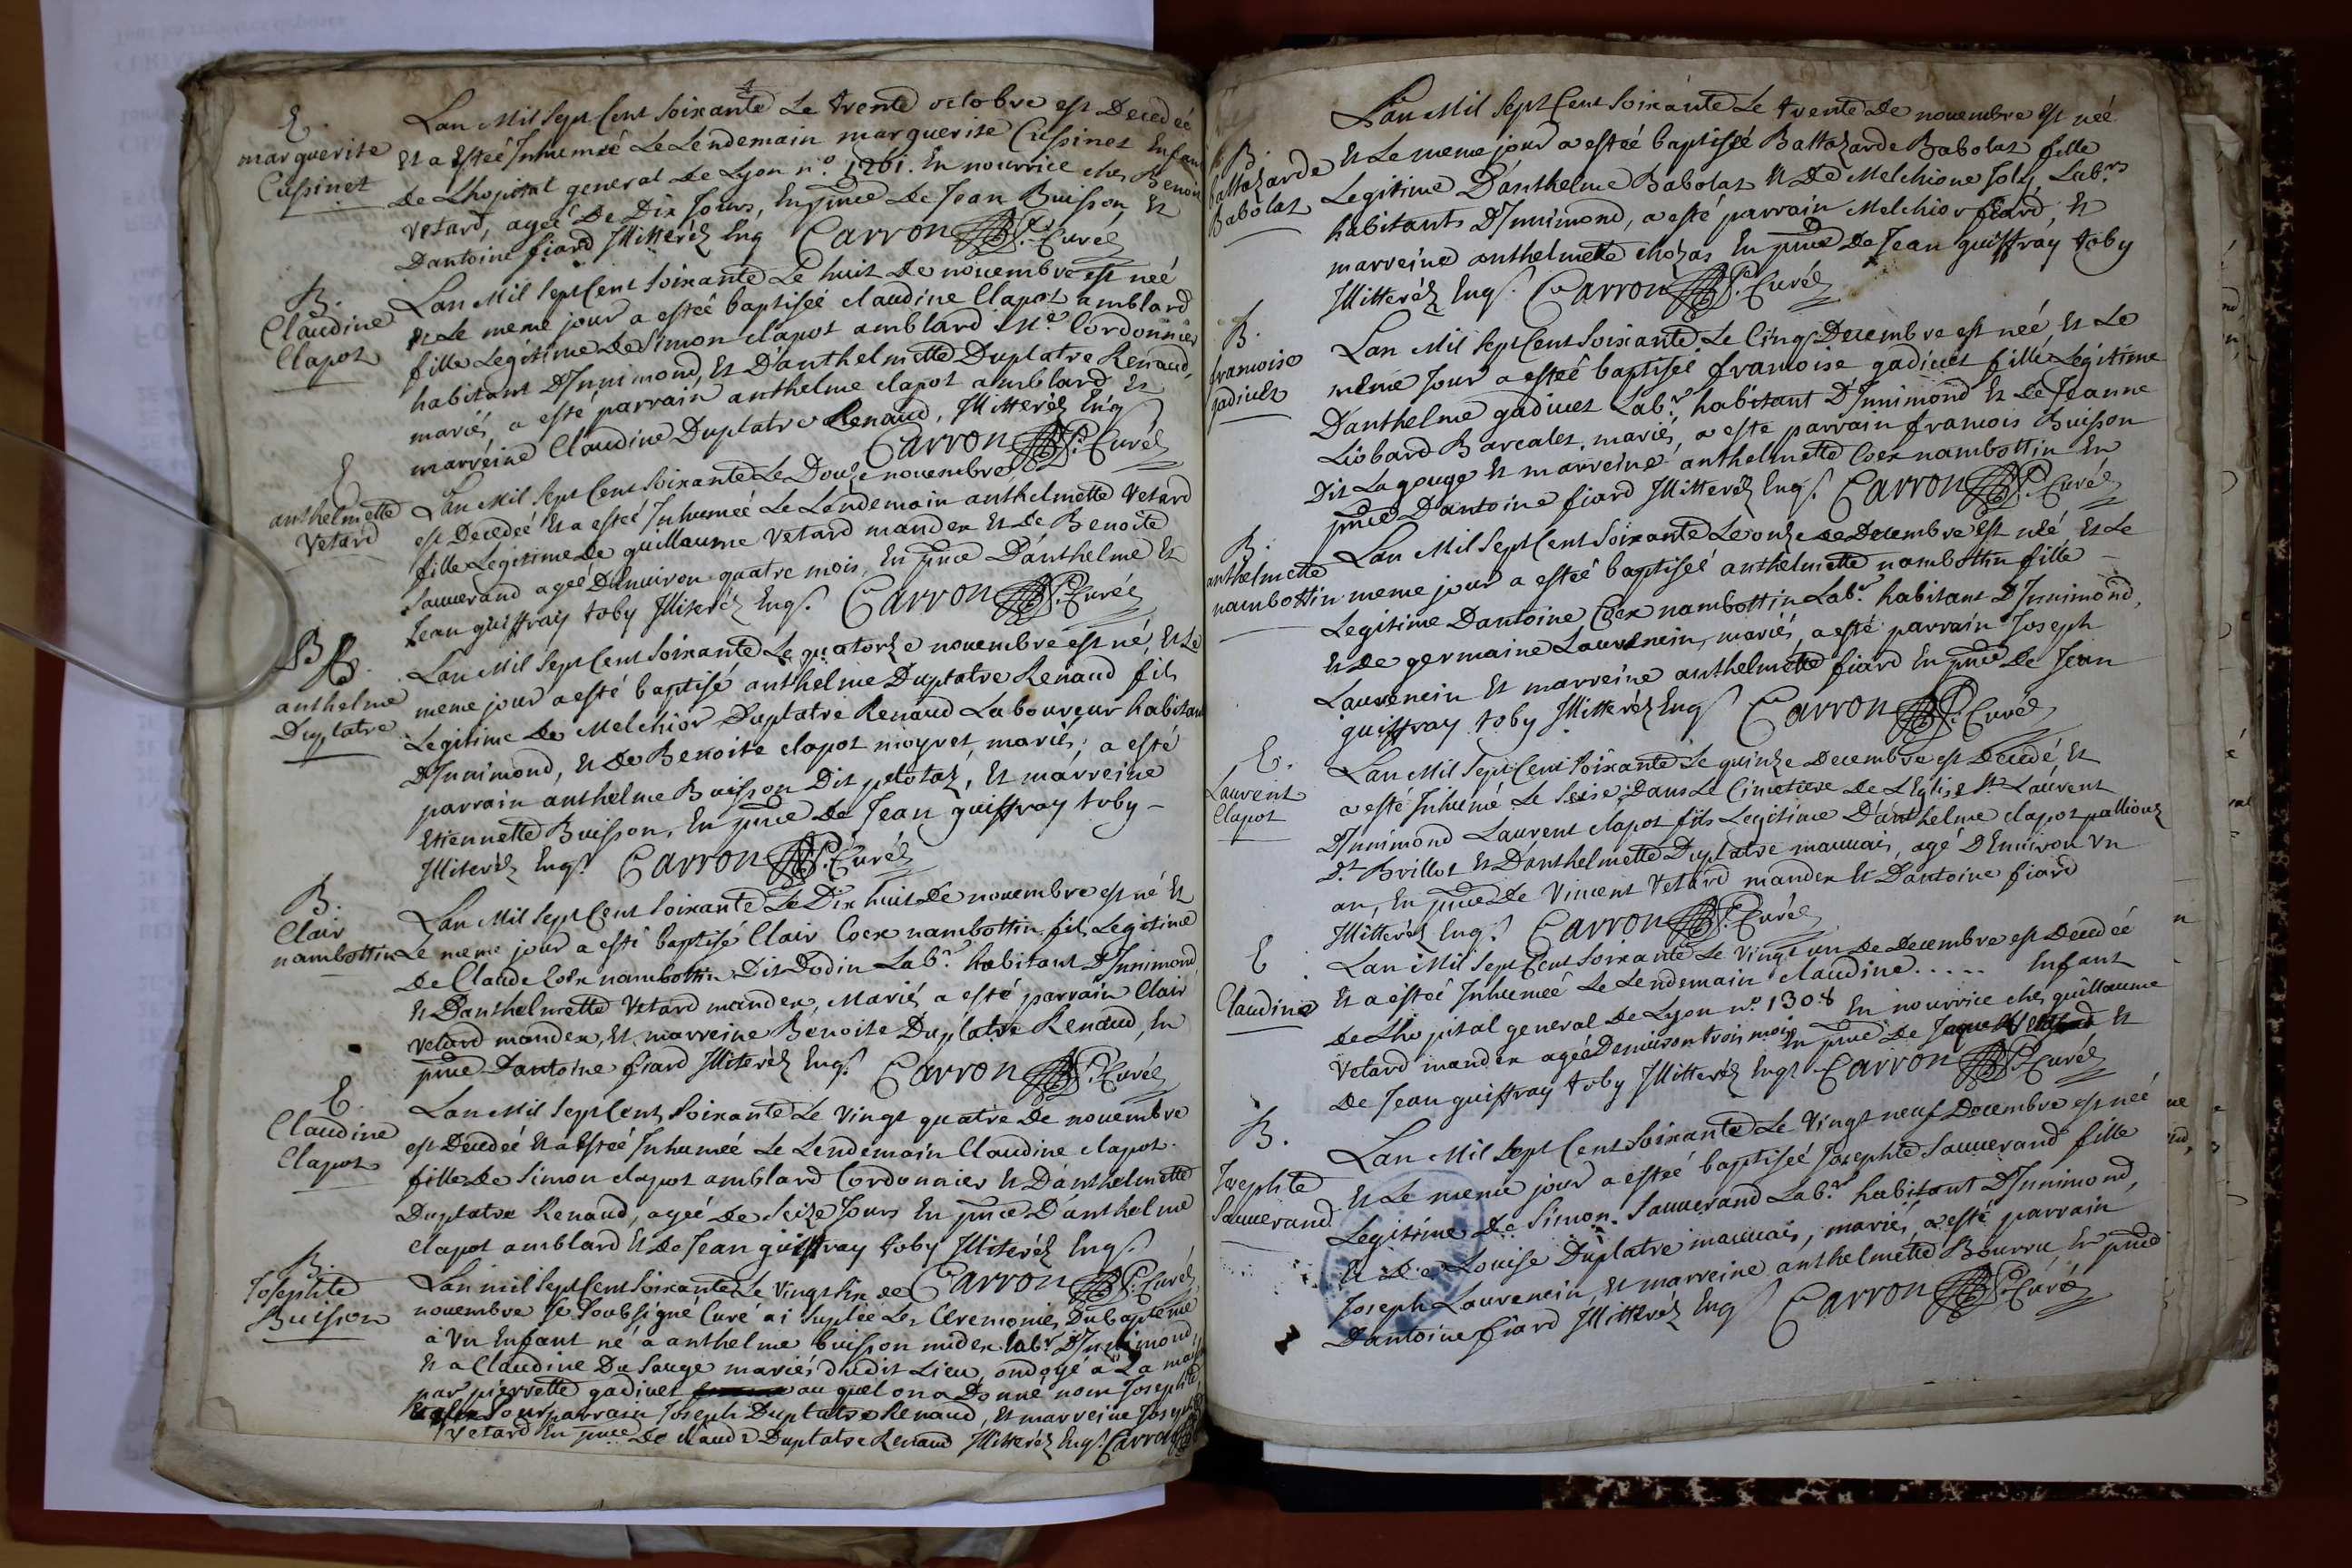 E.
marguerite
Cussinet
Lan Mil Sept Cent Soixante Le trente octobre est Decedeé
Et a Esteé Inhumeé Le Lendemain marguerite Cussinet Enfant
de Lhopital general de Lyon n.º 1261. En nourrice ches Benoit
Vetard, ageé De Dix Jours, En pñce De Jean Buisson, Et
Dantoine fiard Illitteréz Enq Carron Curéz
B.
Claudine
Clapot
Lan Mil Sept Cent Soixante Le huit De nouembre est neé
Et Le meme jour a esteé baptiseé claudine Clapot amblard
fille Legitime De Simon clapot amblard Me Cordonnier
habitant D'Innimond, Et D'anthelmette Duplatre Renaud,
mariés, a esté parrain anthelme clapot amblard Et
marréine Claudine Duplatre Renaud, Illitteréz Enq
Carron Curéz
E
anthelmette
Vetard
Lan Mil Sept Cent Soixante Le Douze nouembre
est Decedeé Et a esteé Inhumeé Le Lendemain anthelmette Vetard
fille Legitime De guillaume Vetard mander Et de Benoite
Sauuerand ageé D'Enuiron quatre mois, En pñce D'anthelme Et
Jean guiffray toby Illiteréz Enqs. Carron Curéz
B E.
anthelme
Duplatre
Lan Mil Sept Cent Soixante Le quatorze nouembre est né, Et Le
meme jour a esté baptisé anthelme Duplatre Renaud fils
Legitime De Melchior Duplatre Renaud Laboureur habitant
D'Innimond, Et De Benoite clapot moyret, mariés, a esté
parrain anthelme Buisson Dit pelotaz, Et marreine
Etiennette Buisson, En pñce De Jean guiffray toby -
Illiteréz Enqs. Carron Curéz
B.
Clair
nambottin
Lan Mil Sept Cent Soixante Le Dix huit De nouembre est né Et
Le meme jour a esté baptisé Clair Coex nambottin fils Legitime
De Claude Coex nambottin Dit Dodin Labr. habitant D'Innimond
Et Danthelmette Vetard mander, Mariés a esté parrain Clair
Vetard mander, Et marreine Benoite Duplatre Renaud, En
pñce Dantoine fiard Illiteréz Enqs. Carron Curéz
E.
Claudine
Clapot
Lan Mil Sept Cent Soixante Le Vingt quatre De nouembre
est Decedeé Et a Esteé Inhumeé Le Lendemain Claudine clapot
fille De Simon clapot amblard Cordonnier Et D'anthelmette
Duplatre Renaud, ageé De Seize Jours En pñce D'anthelme
clapot amblard Et De Jean guiffray toby Illiteréz Enqs.
Carron Curéz
B.
Josephte
Buisson
Lan mil Sept Cent Soixante Le Vingt Six de
nouembre Je Soubsigné Curé ai Supleé Les Ceremonies Du Baptême
à Vn Enfant né a anthelme buisson mider labr. D'Innimond,
Et a Claudine Du Sauge mariés dudit Lieu, ondoyé a La maison
par pierrette gadiuet au quel on a Donné nom Josephte
Pour parrain Joseph Duplatre Renaud, Et marreine Josephte
Vetard En pñce De claude Duplatre Renaud Illitteréz Enqs. Carron
B.
baltazarde
Babolat
Lan Mil Sept Cent Soixante Le trente De nouembre Est neé
Et Le meme jour a esteé baptiseé Baltazarde Babolat fille
Legitime D'anthelme Babolat Et De Melchione Joly, Labrs
habitants D'Innimond, a esté parrain Melchior fiard, Et
marreine anthelmette chozas En pñce De Jean guiffray toby
Illitteréz Enqs. Carron Curéz
B.
francoise
gadiuet
Lan Mil Sept Cent Soixante Le Cinq Decembre est neé, Et Le
même Jour a esteé baptiseé francoise gadiuet fille Legitime
Danthelme gadiuet Labr. habitant D'Innimond Et de Jeanne
Liobard Barcalet, mariés, a esté parrain francois Buisson
Dit Lagouge Et marreine anthelmette Coex nambottin En
pñce Dantoine fiard Illitteréz Enqs. Carron Curéz
B.
anthelmette
nambottin
Lan Mil Sept Cent Soixante Le onze de Decembre Est neé Et Le
meme jour a esteé baptiseé anthelmette nambottin fille
Legitime Dantoine Coex nambottin Labr. habitant D'Innimond,
Et De germaine Laurencin, mariés, a esté parrain Joseph
Laurencin Et marreine anthelmette fiard En pñce De Jean
guiffray toby Illitteréz Enqs Carron Curéz
E.
Laurent
Clapot
Lan Mil Sept Cent Soixante Le quinze Decembre est Decedé Et
a esté Inhumé Le Seise Dans Le Cimetiere De L'Eglise St. Laurent
D'Innimond Laurent clapot fils Legitime D'anthelme clapot pallioux
Dt. Brillot Et D'anthelmette Duplatre mauuais, agé D'Enuiron Vn
an, En pñce De Vincent Vetard mander Et Dantoine fiard
Illitteréz Enqs. Carron Curéz
E
Claudine
Lan Mil Sept Cent Soixante Le Vingt un De Decembre est Decedeé
Et a esteé Inhumeé Le Lendemain claudine ..... Enfant
De Lhopital general De Lyon n.º 1308 En nourrice ches guillaume
Vetard mander ageé Denuiron trois mois En pñce De Et
De Jean guiffray toby Illitteréz Enqs Carron Curéz
B.
Josephte
Sauuerand
Lan Mil Sept Cent Soixante Le Vingt neuf Decembre est neé
Et Le meme jour a esteé baptiseé Josephte Sauuerand fille
Legitime De Simon Sauuerand Labr. habitant D'Innimond,
Et De Louise Duplatre mauuais, mariés, a esté parrain
Joseph Laurencin, Et marreine anthelmette Bourru, En pñce
Dantoine fiard Illitteréz Enqs Carron Curéz